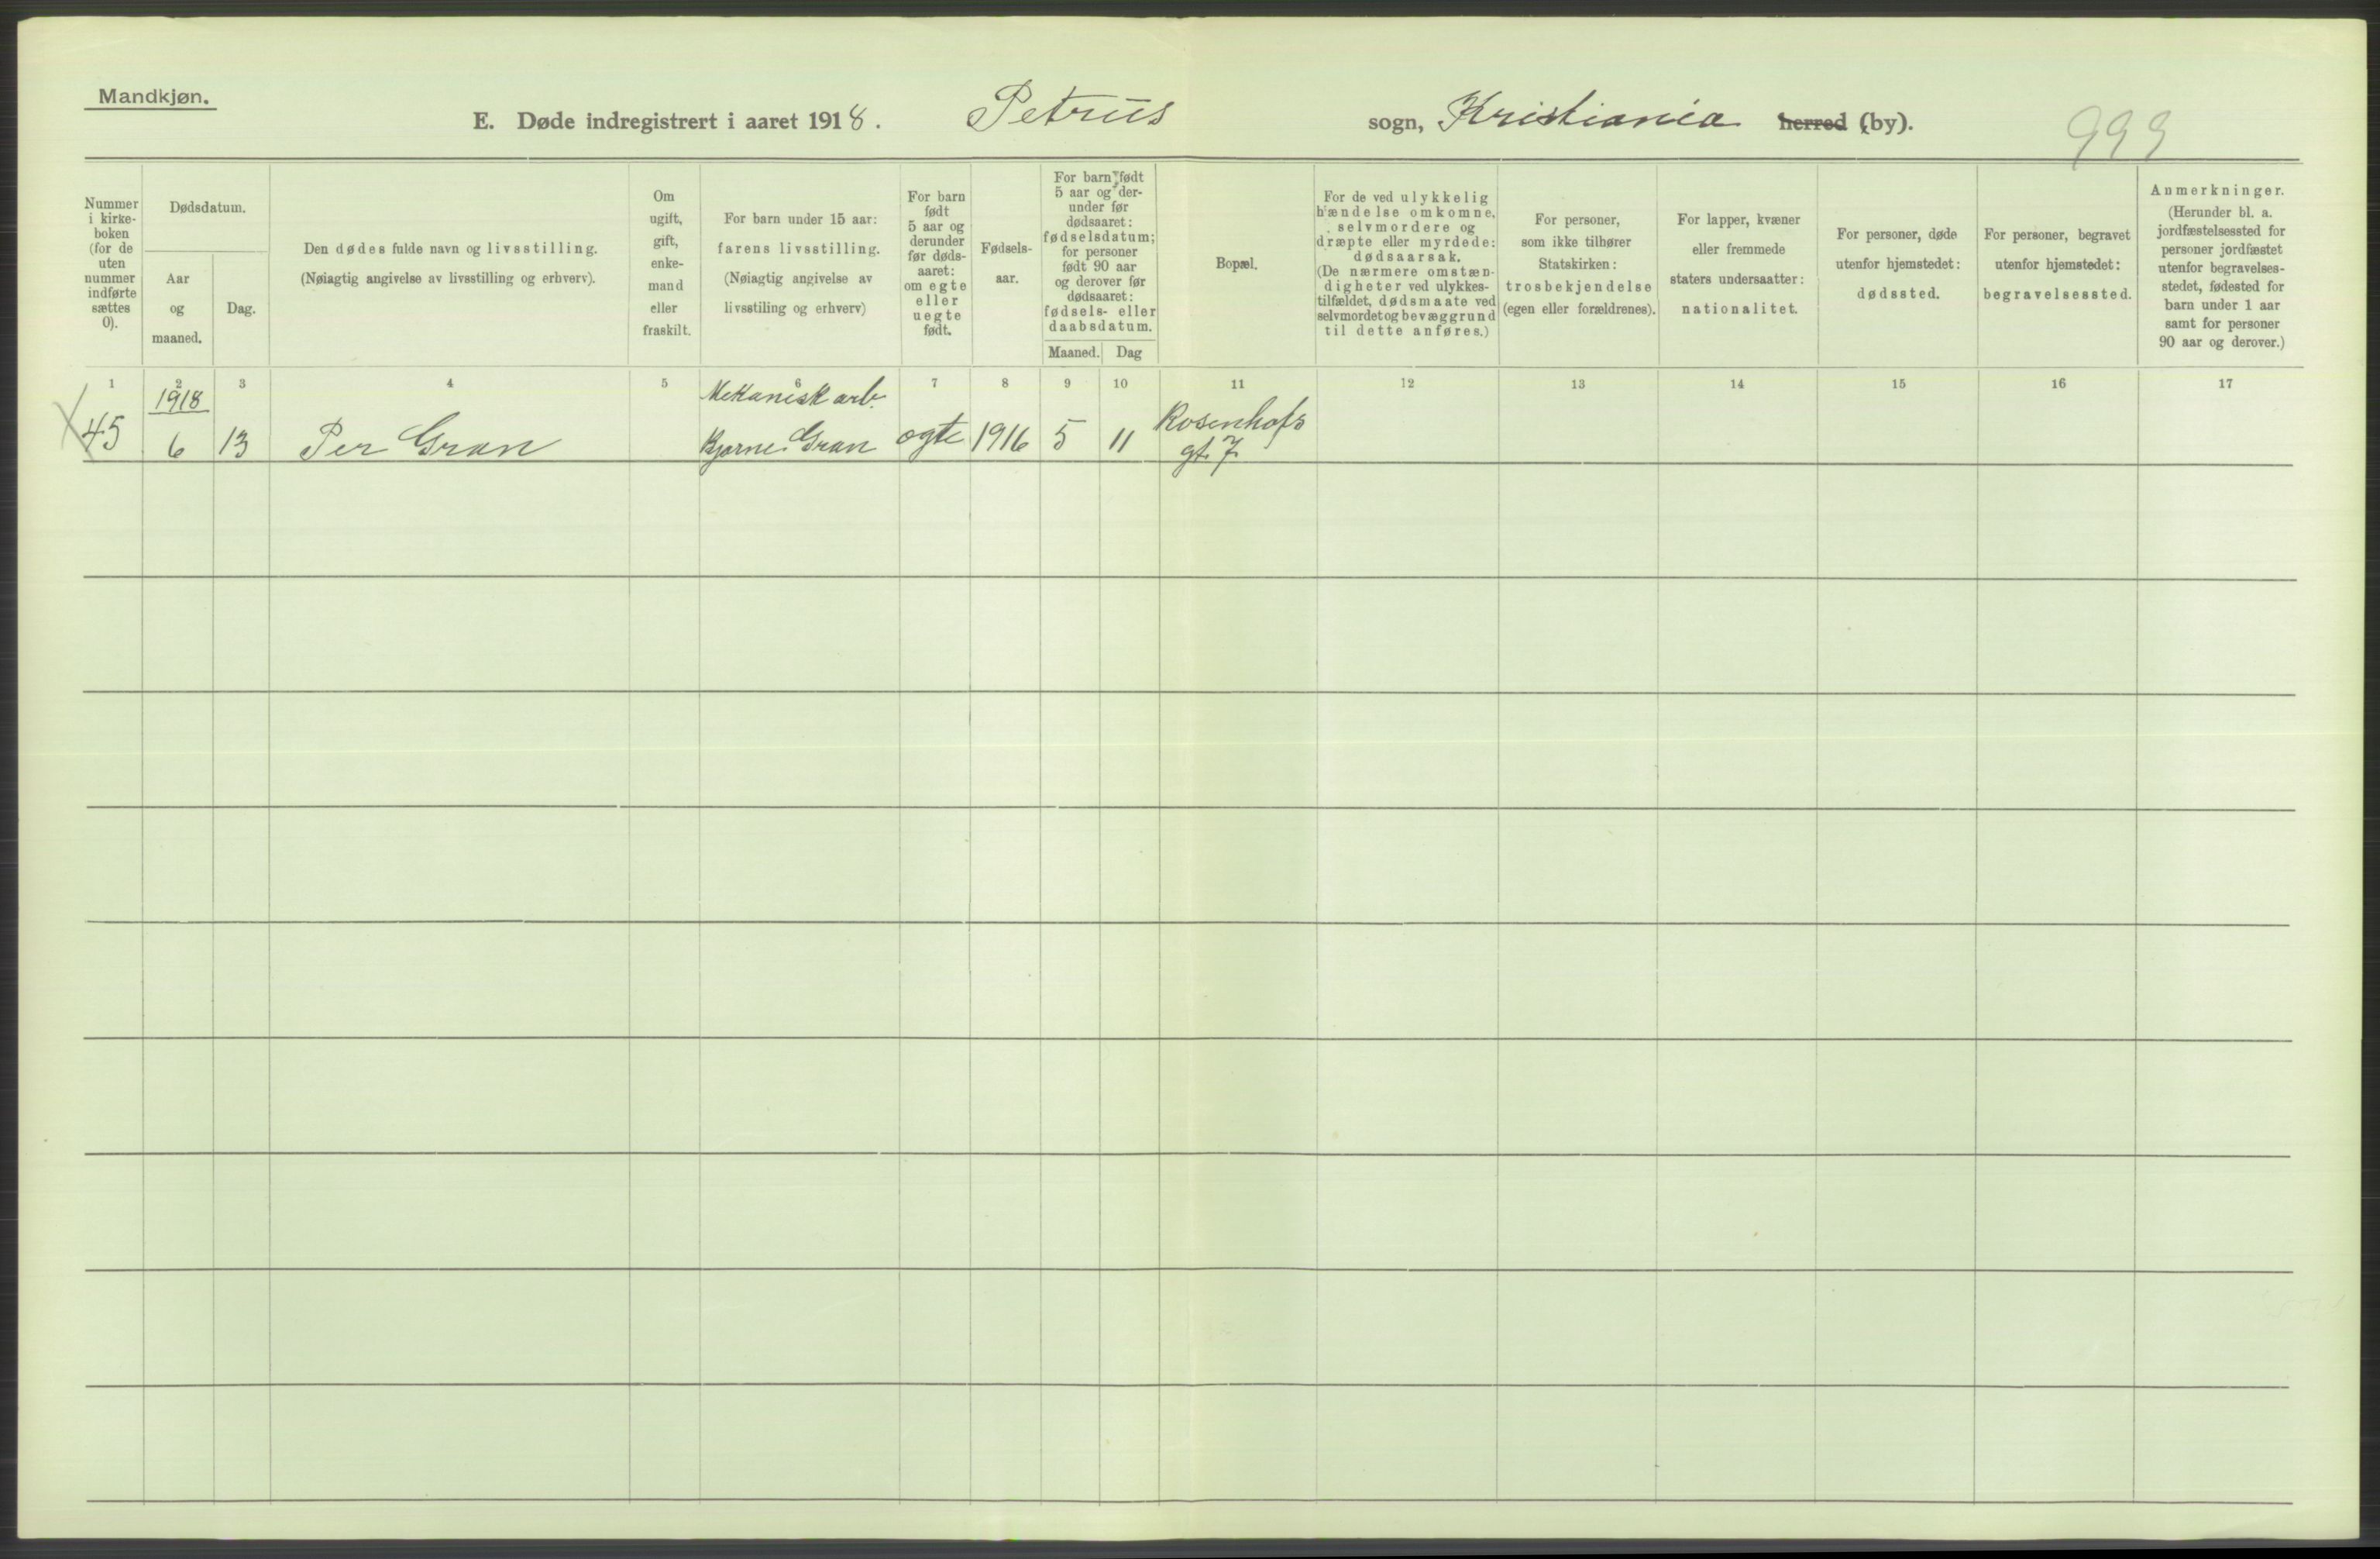 Mandkjøn.
E. Døde indregistrert i aaret 1918. Petrus sogn, Kristiania herred (by).
999
Nummer
i kirke-
boken
(for de
uten
nummer
indførte
sættes
0).
Dødsdatum.
Aar
og
maaned.
Dag.
Den dødes fulde navn og livsstilling.
(Nøiagtig angivelse av livsstilling og erhverv).
Om
ugift,
gift,
enke-
mand
eller
fraskilt.
For barn under 15 aar:
farens livsstilling.
(Nøiagtig angivelse av
livsstiling og erhverv)
For barn
født
5 aar og
derunder
før døds-
aaret:
om egte
eller
uegte
født.
Fødsels-
aar.
For barn født
5 aar og der-
under før
dødsaaret:
fødselsdatum;
for personer
født 90 aar
og derover før
dødsaaret:
fødsels- eller
daabsdatum.
Maaned. Dag
Bopæl.
For de ved ulykkelig
hændelse omkomne,
selvmordere og
dræpte eller myrdede:
dødsaarsak.
(De nærmere omstæn-
digheter ved ulykkes-
tilfældet, dødsmaate ved
selvmordet og bevæggrund
til dette anføres.)
For personer,
som ikke tilhører
Statskirken:
trosbekjendelse
(egen eller forældrenes).
For lapper, kvæner
eller fremmede
staters undersaatter:
nationalitet.
For personer, døde
utenfor hjemstedet:
dødssted.
For personer, begravet
utenfor hjemstedet:
begravelsessted.
Anmerkninger.
(Herunder bl. a.
jordfæstelsessted for
personer jordfæstet
utenfor begravelses-
stedet, fødested for
barn under 1 aar
samt for personer
90 aar og derover.)
1 2 3 4 5 6 7 8 9 10 11 12 13 14 15 16 17
1918 Mekanisk arb.
45 6 13 Per Gran Bjarne Gran egte 1916 5 11 Rosenhofs
gt. 7